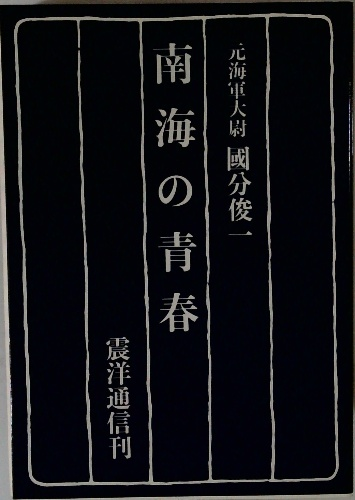 元海軍大尉 國分俊一
南海の青春
震洋通信刊